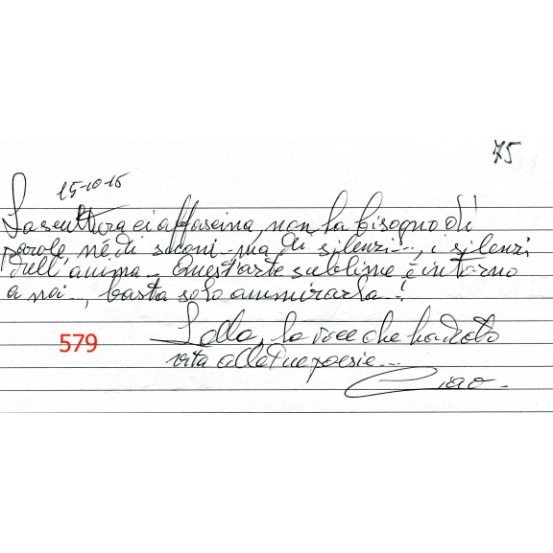 75
15-10-15
La scultura ci affascina, non ha bisogno di
parole, né di suoni - ma di silenzi..., i silenzi
dell'anima - Quest'arte sublime è intorno
a noi.., basta solo ammirarla!
579
Lolla, la voce che ha dato
vita alle tue poesie...
Ciao -